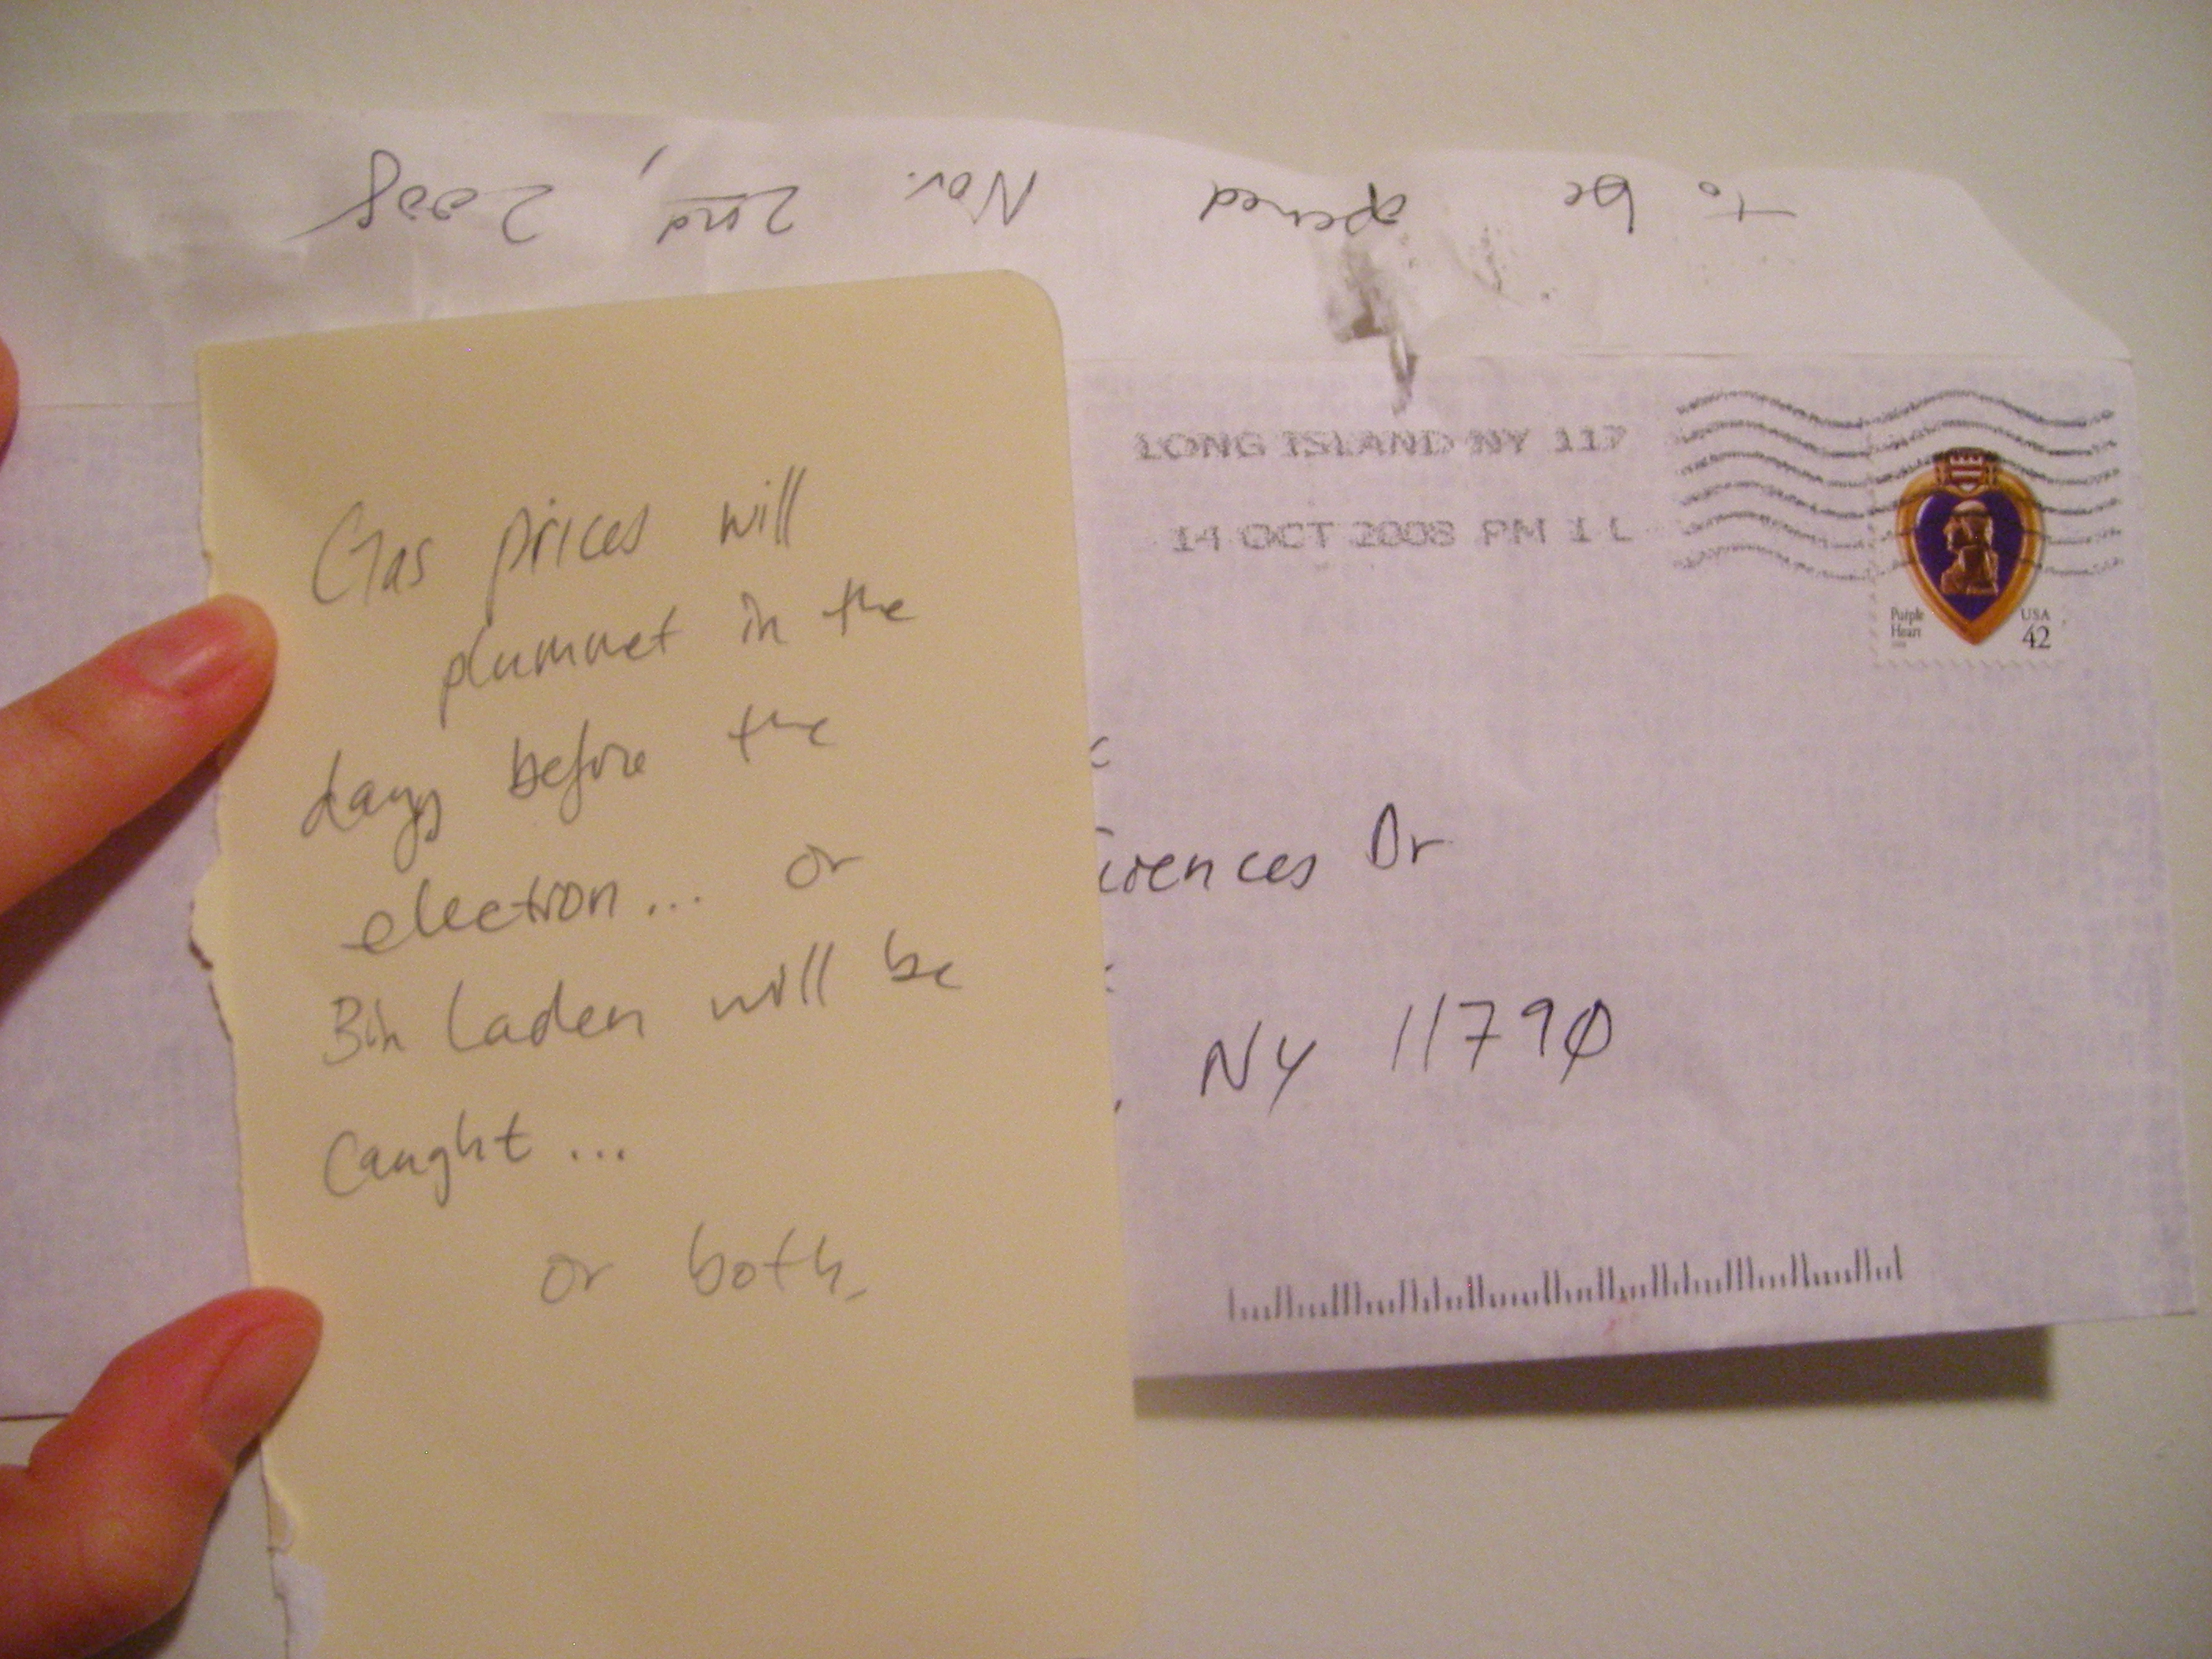 To be opened Nov. 2nd, 2008
Gas prices will
plummet in the
days before the
election... or
Bin Laden will be
Caught...
or both.
LONG ISLAND NY 117
14 OCT 2008 PM 1 L
Purple
Heart
USA
42
Dr
NY 11790